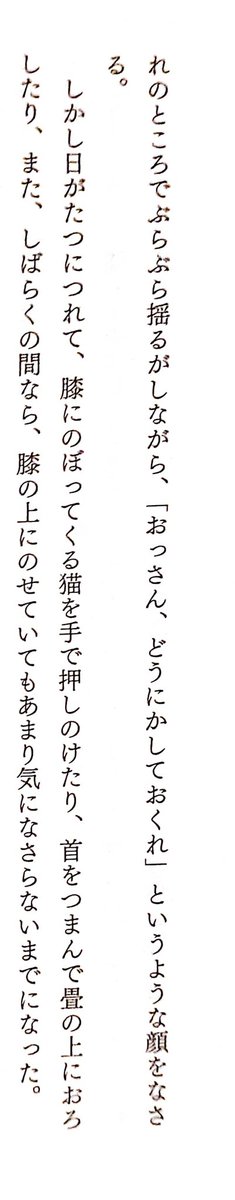 れのところでぶらぶら揺るがしながら、「おっさん、どうにかしておくれ」というような顔をなさ
る。
しかし日がたつにつれて、膝にのぼってくる猫を手で押しのけたり、首をつまんで畳の上におろ
したり、また、しばらくの間なら、膝の上にのせていてもあまり気になさらないまでになった。